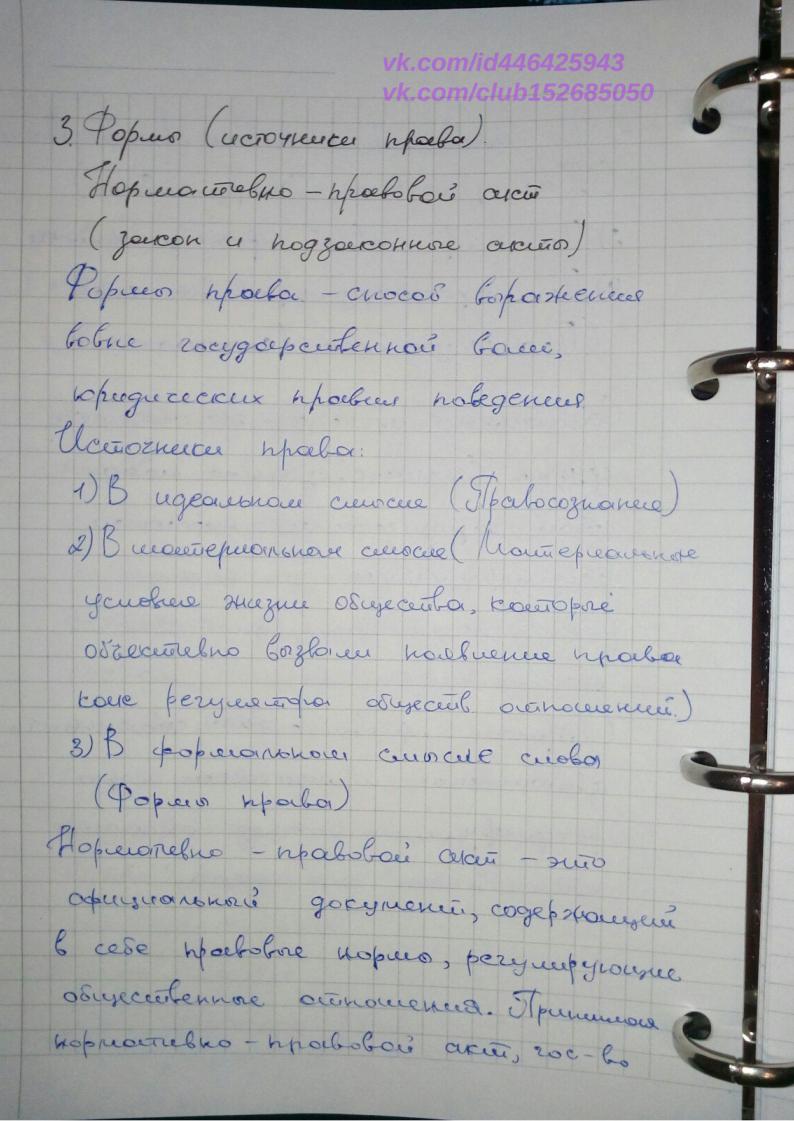 vk.com/id446425943
vk.com/club152685050
3. Формы (источники права).
Нормативно - правовой акт
(закон и подзаконные акты)
Формы права - способ выражения
вовне государственной воли,
юридических правил поведения
Источники права:
1) В идеальном смысле (Правосознание)
2) В материальном смысле (Материальные
условия жизни общества, которые
объективно вызвали появление права
как регулятора обществ отношений.)
3) В формальном смысле слова
(Формы права)
Нормативно - правовой акт - это
официальный документ, содержащий
в себе правовые нормы, регулирующие
общественные отношения. Принимая
нормативно - правовой акт, гос-во